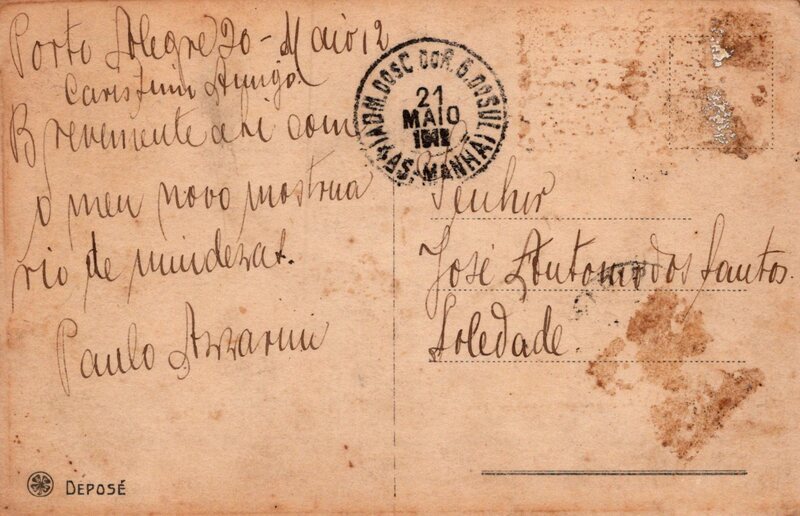 Porto Alegre 20 - Maio 12
Carissimo Amigo
Brevemente ahi com
o meu novo mostrua
rio de miudezas.
Paulo Azzarini
DEPOSÉ
(ADM. DOS C DO R. G. DO SUL)
21
MAIO
1912
(4 AS. MANHÃ)
Senhor
José Antonio dos Santos
Soledade.